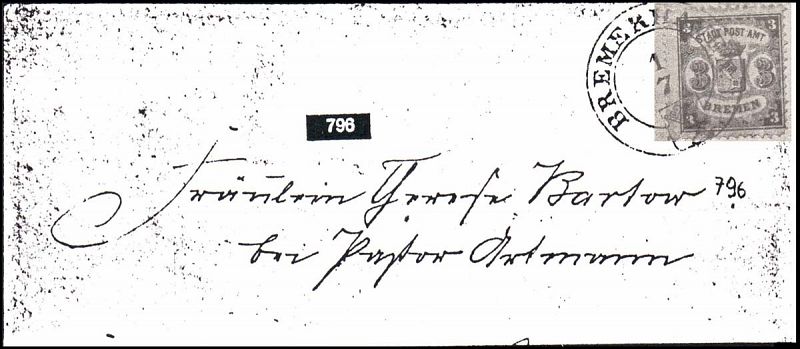 BREMERH
1
7
3 3
STADT POST AMT
3 3
BREMEN
3 3
796
Fräulein Therese Bartow 796
bei Pastor Ortmann